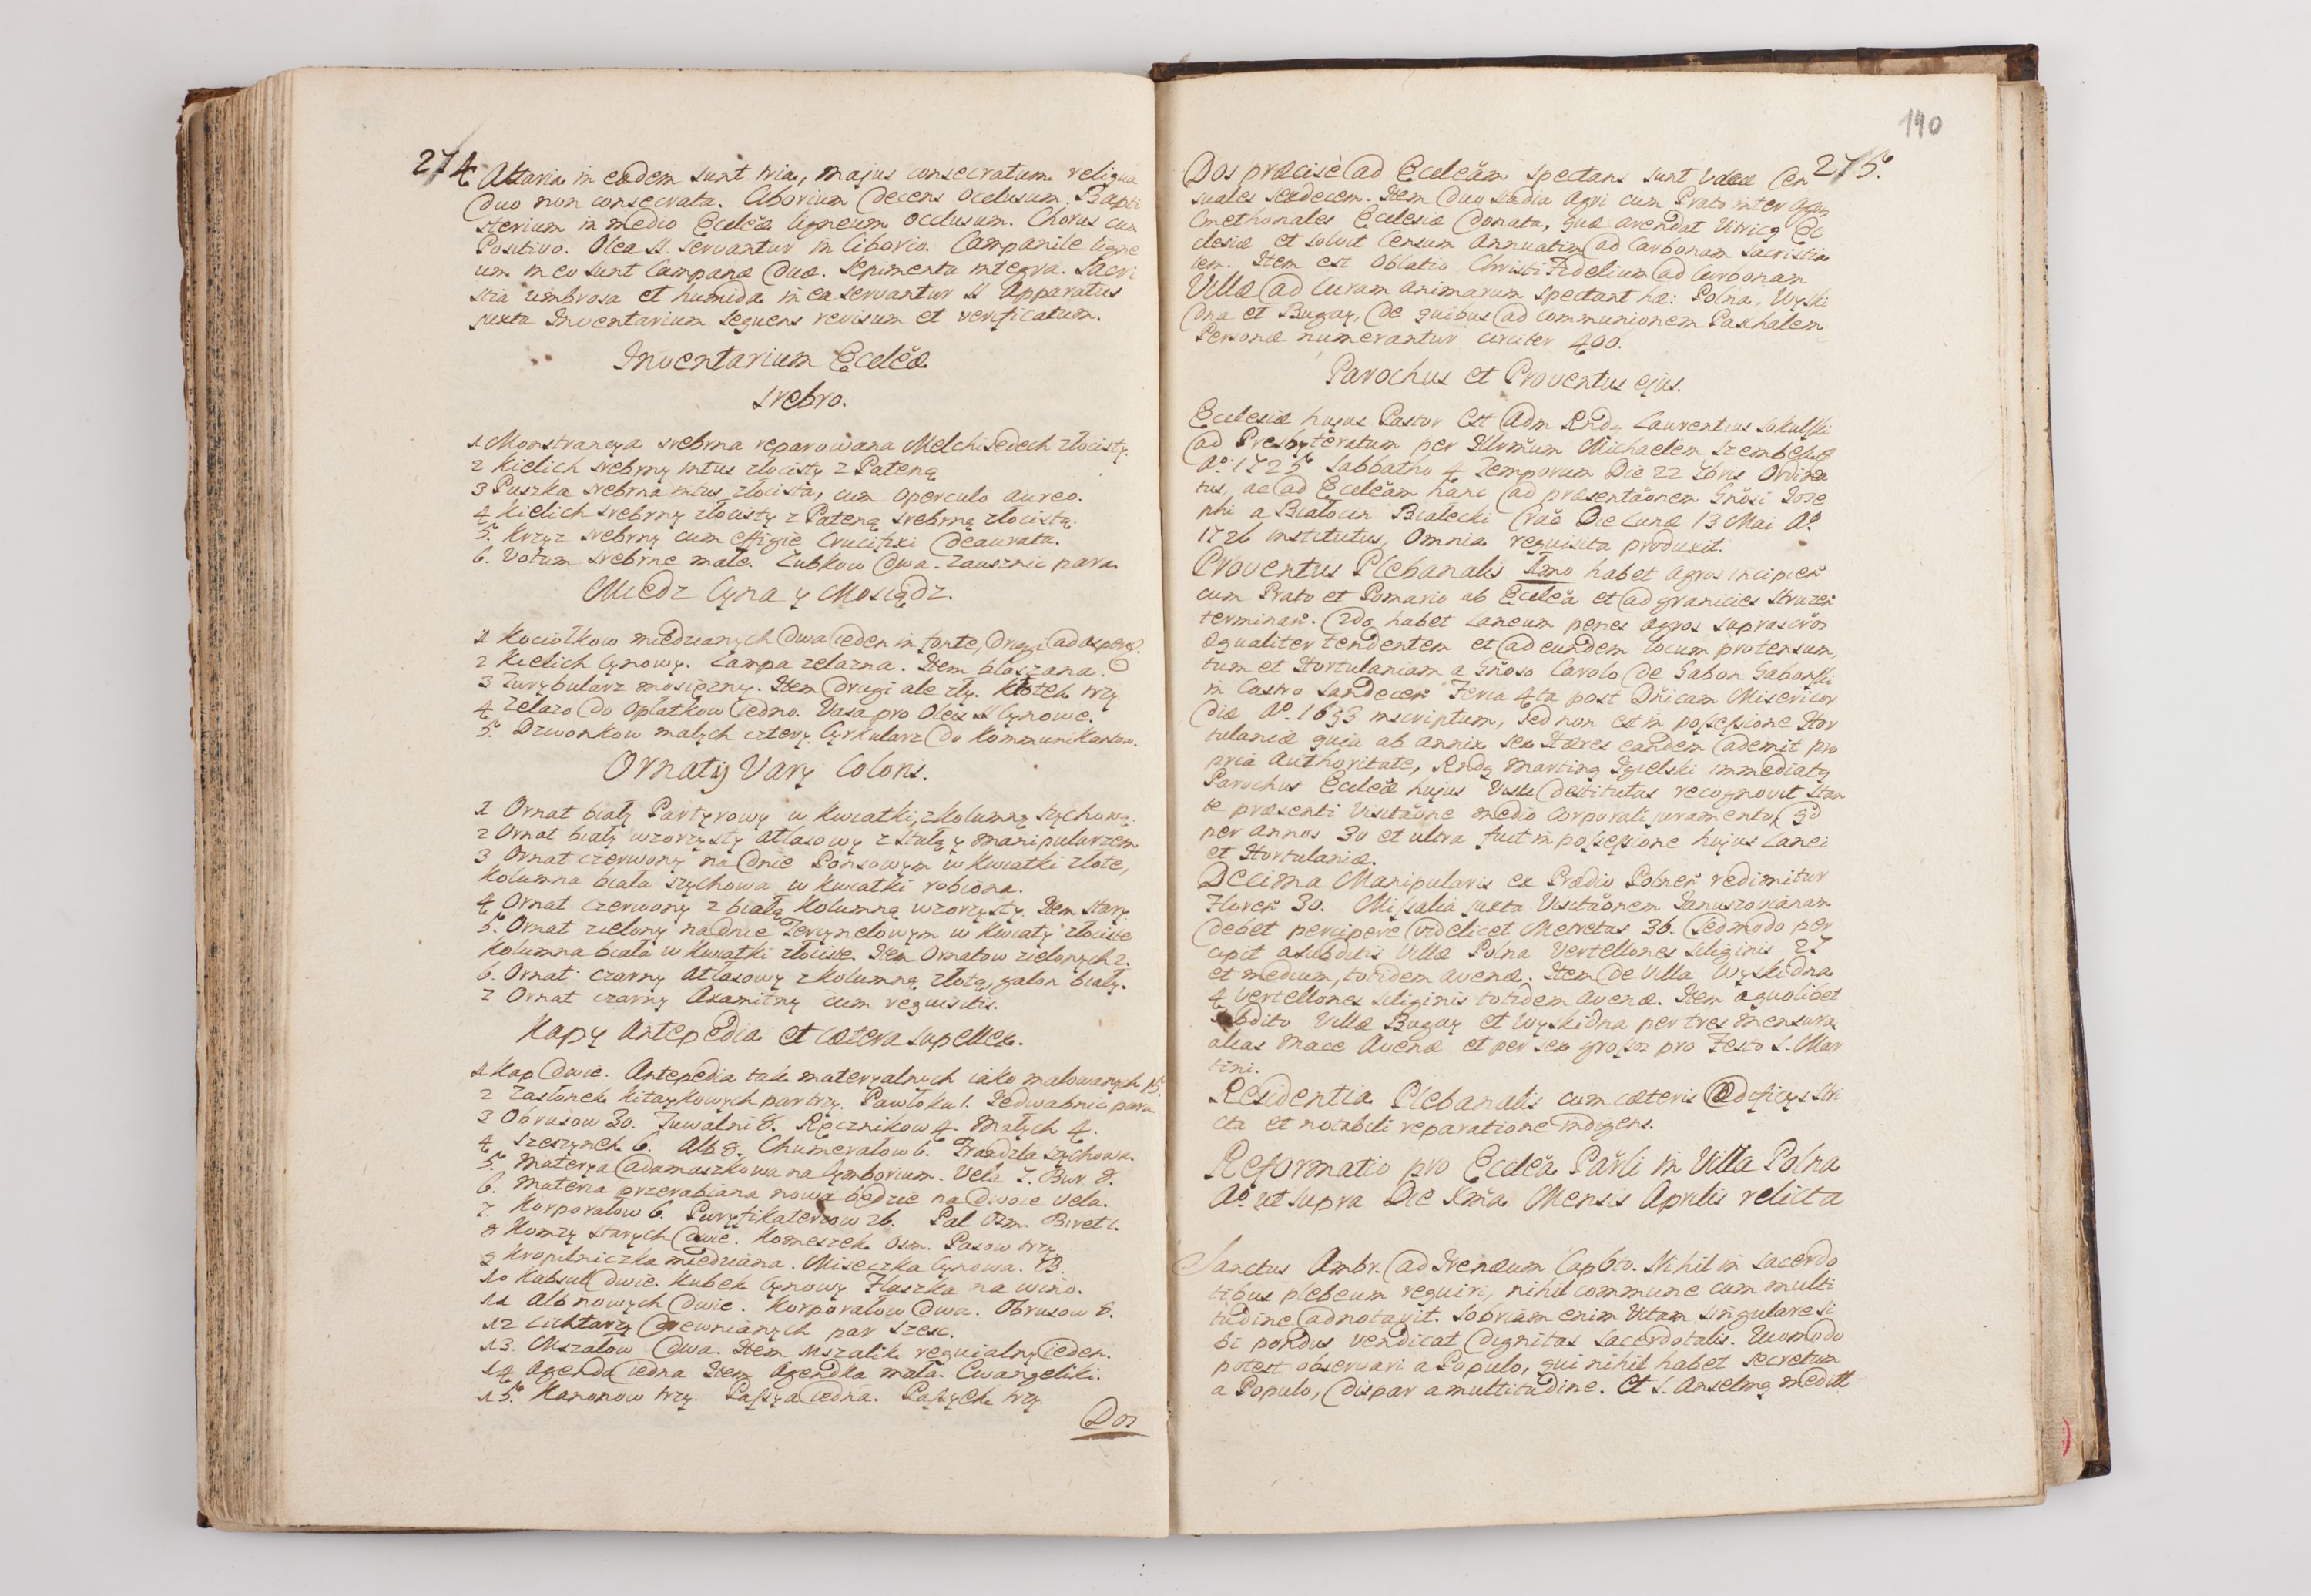 274
Altaria in eadem sunt tria, majus consecratum reliqua
duo non consecrata. Ciborium decens occlusum. Bapti
sterium in medio Ecclẽæ ligneum occlusum. Chorus cum
Positivo. Olea SS. servantur in Ciborio. Campanile ligne
um in eo sunt Campanæ duæ. Sepimenta integra. Sacri
stia umbrosa et humida in ea servantur SS Apparatus
juxta Inventarium sequens revisum et verificatum.
Inventarium Ecclẽæ
srebro.
1 Monstrancya srebrna reparowana Melchisedech złocisty.
2 Kielich srebrny intus złocisty z Pateną
3 Puszka srebrna intus złocista, cum operculo aureo.
4 Kielich srebrny złocisty z Pateną srebrną złocistą.
5. Krzyz srebrny cum effigie Crucifixi deaurata.
6. Votum srebrne małe. Zubkow dwa. Zausznic para
Miedz Cyna y Mosiądz.
1 Kociołkow miedzianych dwa ieden in fonte, drugi ad asperg.
2 Kielich Cynowy. Lampa zelazna. Item blaszana.
3 Turybularz mosięzny. Item drugi ale zły. Kłotek trzy.
4 Zelazo do Opłatkow iedno. Vasa pro Oleis SS Cynowe.
5. Dzwonkow małych cztery. Cyrkularz do Kommunikantow.
Ornaty Vary Coloris.
1 Ornat biały Partyrowy w kwiatki, z kolumną szychową.
2 Ornat biały wzorzysty atlasowy z stułą y manipularzem
3 Ornat czerwony na dnie Ponsowym w kwiatki złote,
kolumna biała szychowa w kwiatki robiona.
4 Ornat czerwony z białą kolumną wzorzysty. Item stary.
5. Ornat zielony na dnie Tercynelowym w kwiaty złociste
kolumna biała w kwiatki złociste. Item Ornatow zielonych 2.
6. Ornat czarny Atłasowy z kolumną złotą, galon biały.
7 Ornat czarny Axamitny cum requisitis.
Kapy Antepedia et cætera supellex.
1 Kap dwie. Antepedia tak materyalnych iako malowanych 15.
2 Zasłonek kitaykowych par trzy. Pawłoku 1. Jedwabnic para.
3 Obrusow 30. Tuwalni 8. Ręcznikow 4. Małych 4.
4 Szeszynek 6. Alb 8. Chumerałow 6. szychowa.
5. Materya adamaszkowa na Cymborium. Vela 7. Bur. 8.
6. Materia przerabiana nowa będzie na dwoie Vela.
7. Korporałow 6. Puryfikaterzow 26. Pal Osm. Biret 1.
8 Komzy starych dwie. Komeszek osm. Pasow trzy.
9 Kropilniczka miedziana. Miseczka Cynowa. B.
10 Kabsul dwie. Kubek Cynowy. Flaszka na wino.
11 Alb nowych dwie. Korporałow dwa. Obrusow 8.
12 Lichtarzy drewnianych par szesc.
13. Mszałow dwa. Item Mszalik requialny ieden.
14 Agenda iedna Item Agendka mała. Ewangeliki.
15. Kanonow trzy. Passya iedna. Passyek trzy.
Dos
190
275.
Dos præcisè ad Ecclẽam spectans sunt Vaccæ Cen
suales sexdecem. Item duo stadia Agri cum Prato inter Agros
Cmethonales Ecclesiæ donata, quæ arendat Vitricg Ec
clesiæ et solvit Censum Annuatim ad Carbonam Sacristia
lem. Item est Oblatio Christi Fidelium ad Carbonam
Villæ ad Curam Animarum spectant hæ: Polna, Wyski
dna et Bugay, de quibus ad communionem Paschalem
Personæ numerantur circiter 400.
Parochus et Proventus ejus.
Ecclesiæ hujus Pastor est Adm Rndg Laurentius Sokulski
ad Presbyteratum per Illrmum Michaelem Szembek
Aº. 1725 Sabbatho 4 Temporum Die 22 7bris Ordina
tus, ac ad Ecclẽam hanc ad præsentãonem Gñosi Jose
phi a Białocin Białecki Die Lunæ 13 Mai Aº.
1726 institutus, Omnia requisita produxit.
Proventus Plebanalis 1mo habet Agros incipieñ
cum Prato et Pomario ab Ecclẽa et ad granicies Strozeñ
terminañ. 2do habet Laneum penes Agros suprascr̃os
æqualiter tendentem et ad eundem locum protensum,
tum et Hortulaniam a Gñoso Carolo de Gabon Gaboński
in Castro Sandeceñ Feria 4ta post Dñicam Misericor
diæ Aº. 1633 inscriptum, sed non est in possessione Hor
tulaniæ quia ab annis sex Hæres eandem ademit pro
pria Authoritate, Rndg Marting Jgielski immediatg
Parochus Ecclẽæ hujus Visu destitutus recognovit Stan
te præsenti Visitãone medio Corporali juramento, qd
per annos 30 et ultra fuit in possessione hujus Lanei
et Hortulaniæ.
Decima Manipularis ex Prædio Polneñ redimitur
Floreñ 30. Missalia juxta Visitãonem Januszovianam
debet percipere videlicet Metretas 36. sed modo per
cipit a subditis Villæ Polna Vertellones siliginis 27
et medium, totidem avenæ. Item de Villa Wyskidna
4 vertellones siliginis totidem avenæ. Item a quolibet
subdito Villæ Bugay et Wyskidna per tres mensuras
alias Mace Avenæ et per sex grossos pro Festo S. Mar
tini.
Residentia Plebanalis cum cæteris Ædificys Stri
cta et notabili reparatione indigens.
Reformatio pro Ecclẽa Par̃li in Villa Polna
Aº. ut supra Die Mensis Aprilis relicta
Sanctus Ambr. ad Irenæum Cap 6to. Nihil in Sacerdo
tibus plebeum requiri, nihil commune cum multi
tudine adnotavit. Sobriam enim Vitam singulare si
bi pondus vendicat dignitas Sacerdotalis. Quomodo
potest observari a Populo, qui nihil habet secretum
a Populo, dispar a multitudine. Et S. Anselmg medit